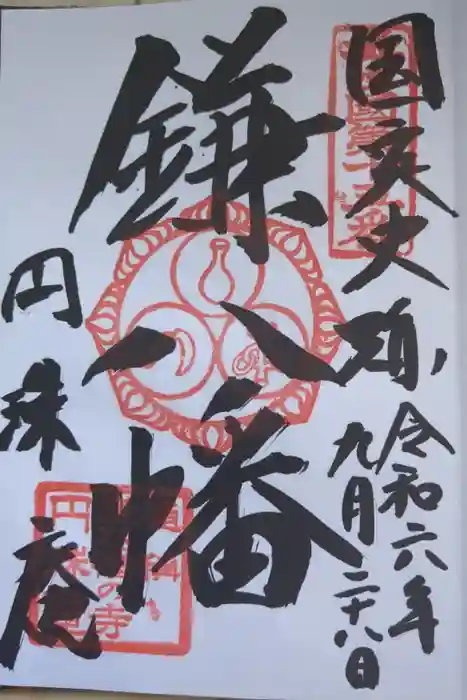 国定史跡
令和六年
九月二十八日
鎌八幡
円珠庵